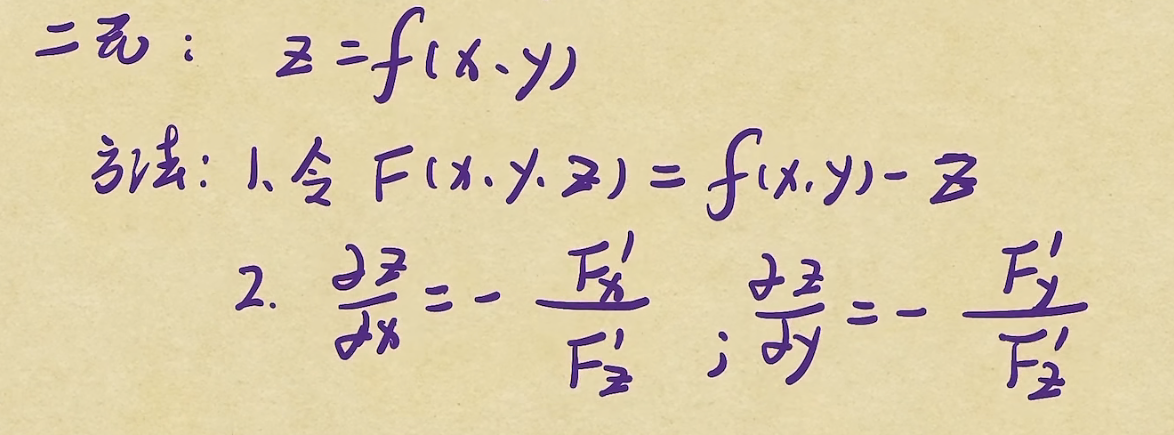 二元: z=f(x、y)
方法: 1、令 F(x、y、z)=f(x,y)-z
2. ∂z/∂x = - F'x/F'z ; ∂z/∂y = - F'y/F'z